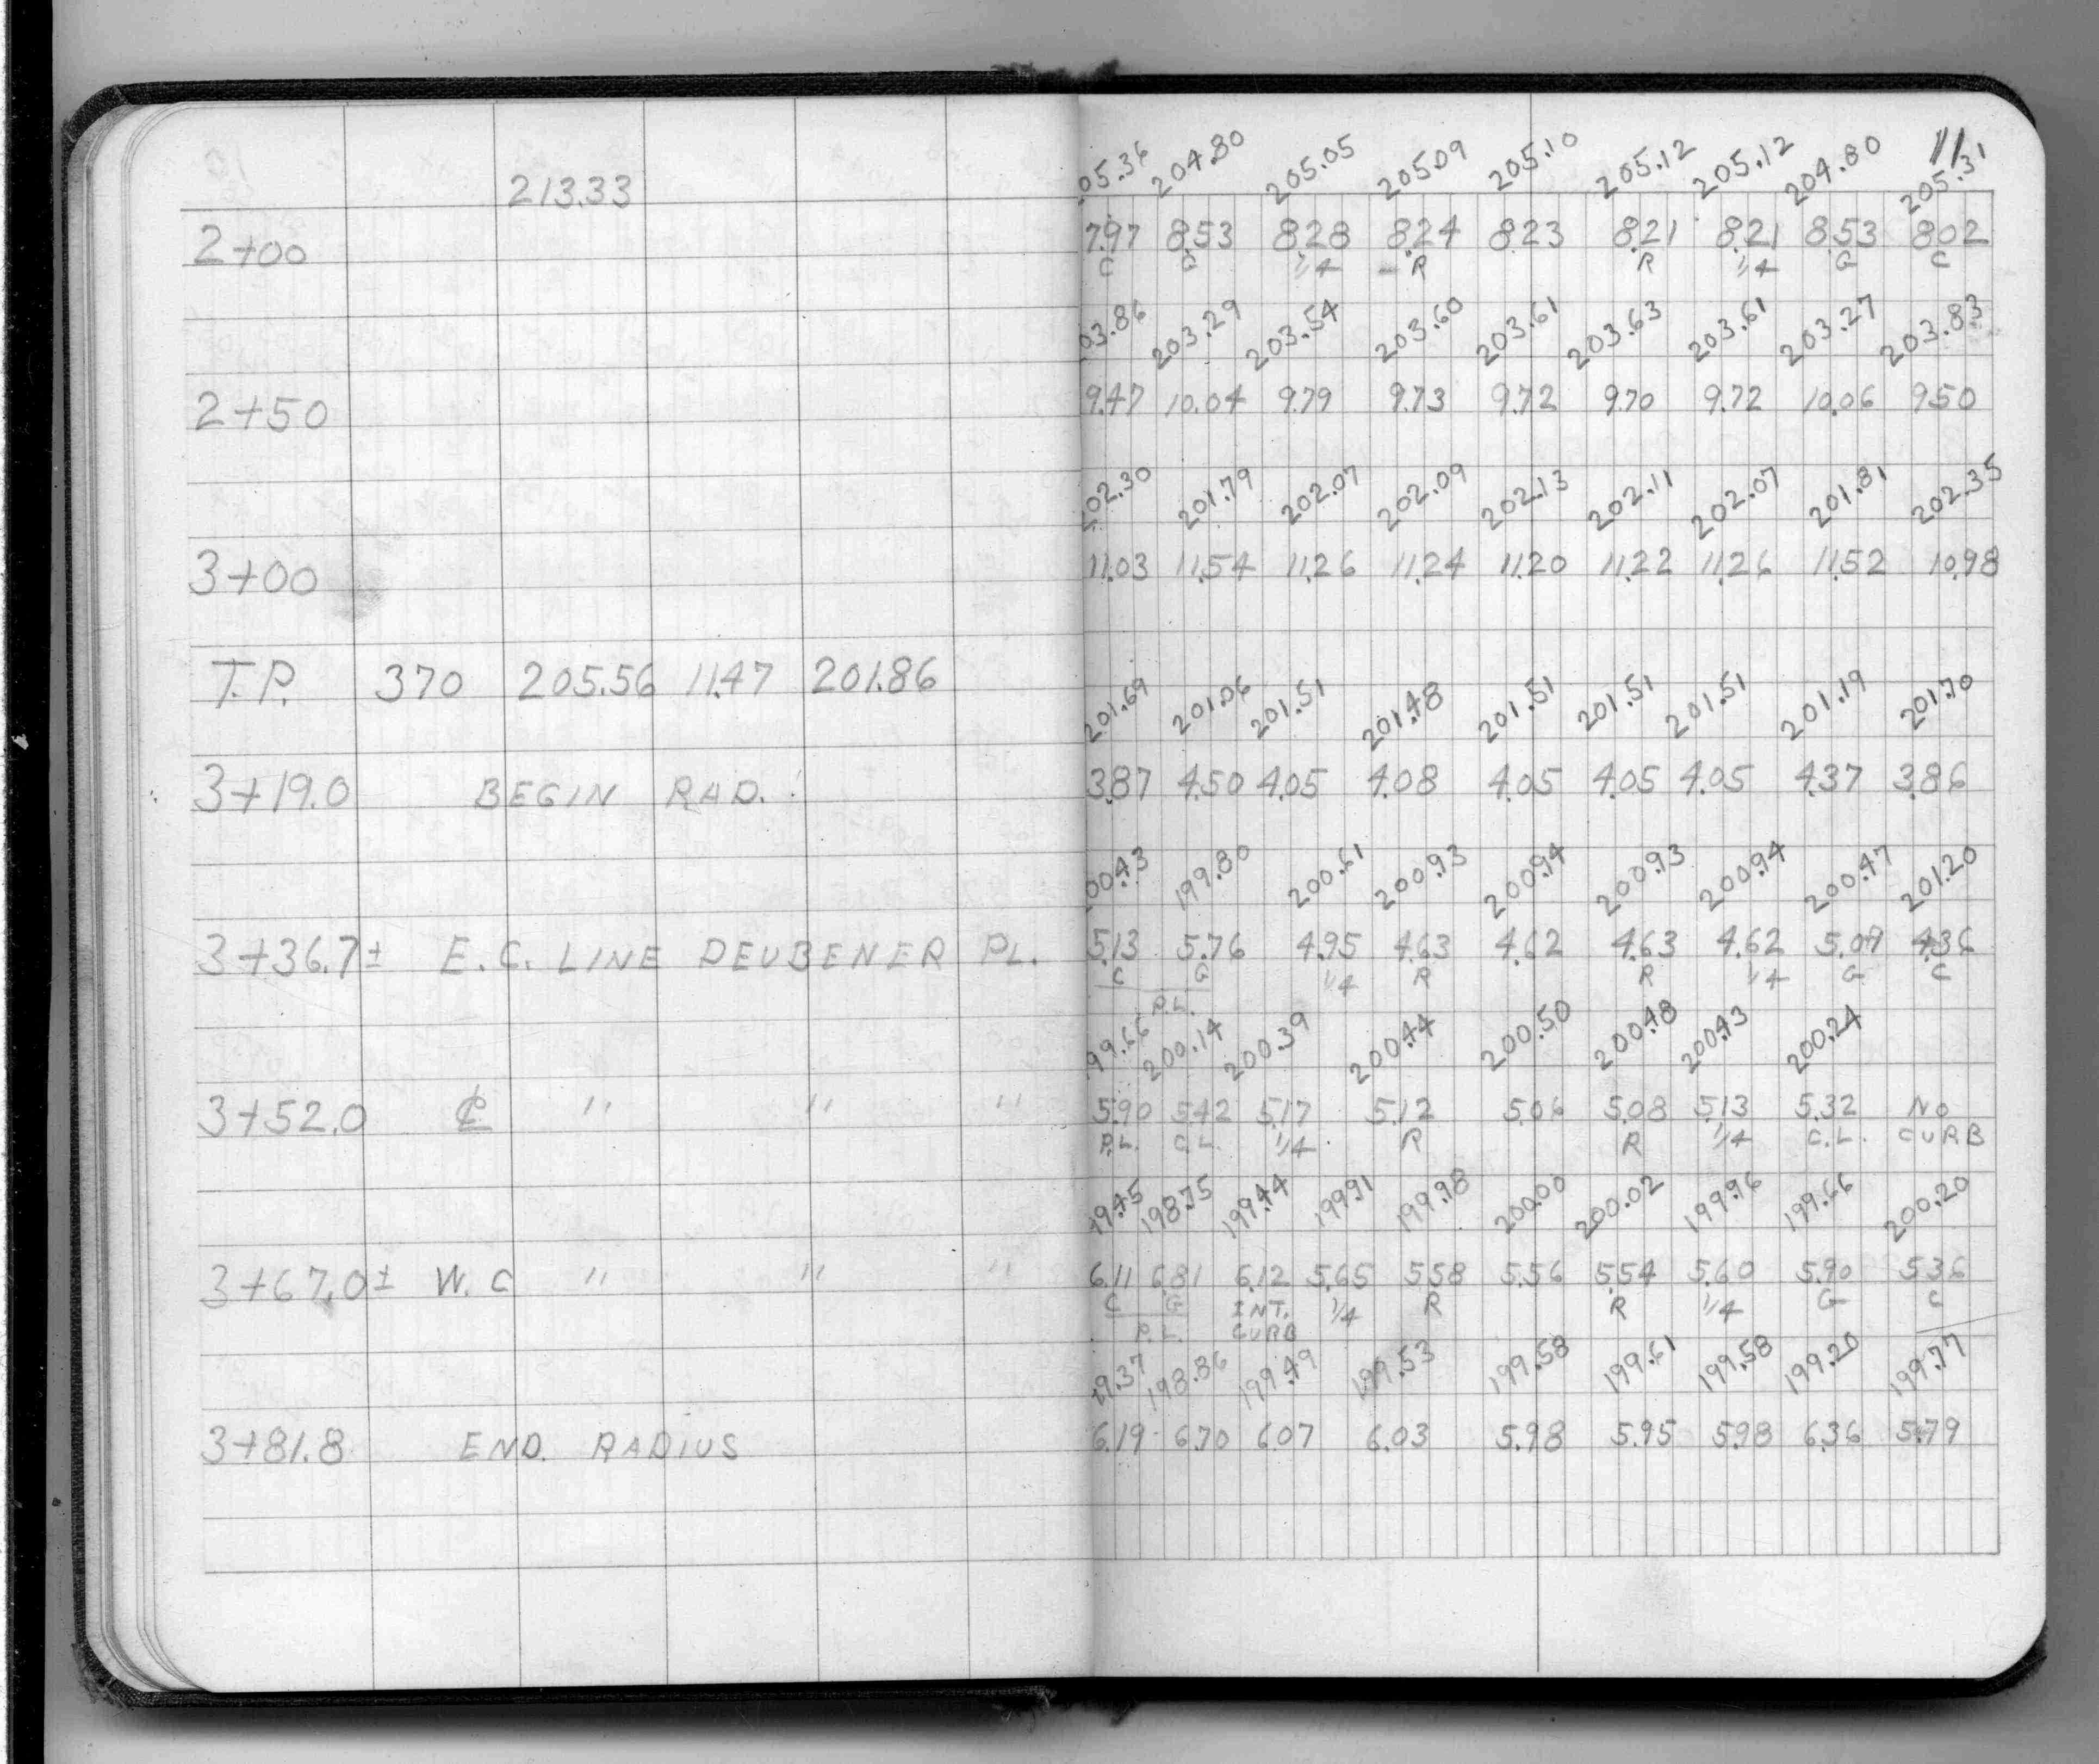 11
213.33
05.36 204.80 205.05 205.09 205.10 205.12 205.12 204.80 205.31
2+00 7.97 8.53 8.28 8.24 8.23 8.21 8.21 8.53 8.02
C G 1/4 R R 1/4 G C
03.86 203.29 203.54 203.60 203.61 203.63 203.61 203.27 203.83
2+50 9.47 10.04 9.79 9.73 9.72 9.70 9.72 10.06 9.50
202.30 201.79 202.07 202.09 202.13 202.11 202.07 201.81 202.35
3+00 11.03 11.54 11.26 11.24 11.20 11.22 11.26 11.52 10.98
T.P. 370 205.56 11.47 201.86
201.69 201.06 201.51 201.48 201.51 201.51 201.51 201.19 201.70
3+19.0 BEGIN RAD. 3.87 4.50 4.05 4.08 4.05 4.05 4.05 4.37 3.86
00.43 199.80 200.61 200.93 200.94 200.93 200.94 200.47 201.20
3+36.7± E.C. LINE DEUBENER PL. 5.13 5.76 4.95 4.63 4.62 4.63 4.62 5.09 4.36
C G 1/4 R R 1/4 G C
P.L.
99.66 200.14 200.39 200.44 200.50 200.48 200.43 200.24
3+52.0 ℄ " " " 5.90 5.42 5.17 5.12 5.06 5.08 5.13 5.32 NO
P.L. C.L. 1/4 R R 1/4 C.L. CURB
99.45 198.75 199.44 199.91 199.98 200.00 200.02 199.96 199.66 200.20
3+67.0± W.C " " " 6.11 6.81 6.12 5.65 5.58 5.56 5.54 5.60 5.90 5.36
C G INT. 1/4 R R 1/4 G C
P.L. CURB
99.37 198.86 199.49 199.53 199.58 199.61 199.58 199.20 199.77
3+81.8 END. RADIUS 6.19 6.70 6.07 6.03 5.98 5.95 5.98 6.36 5.79